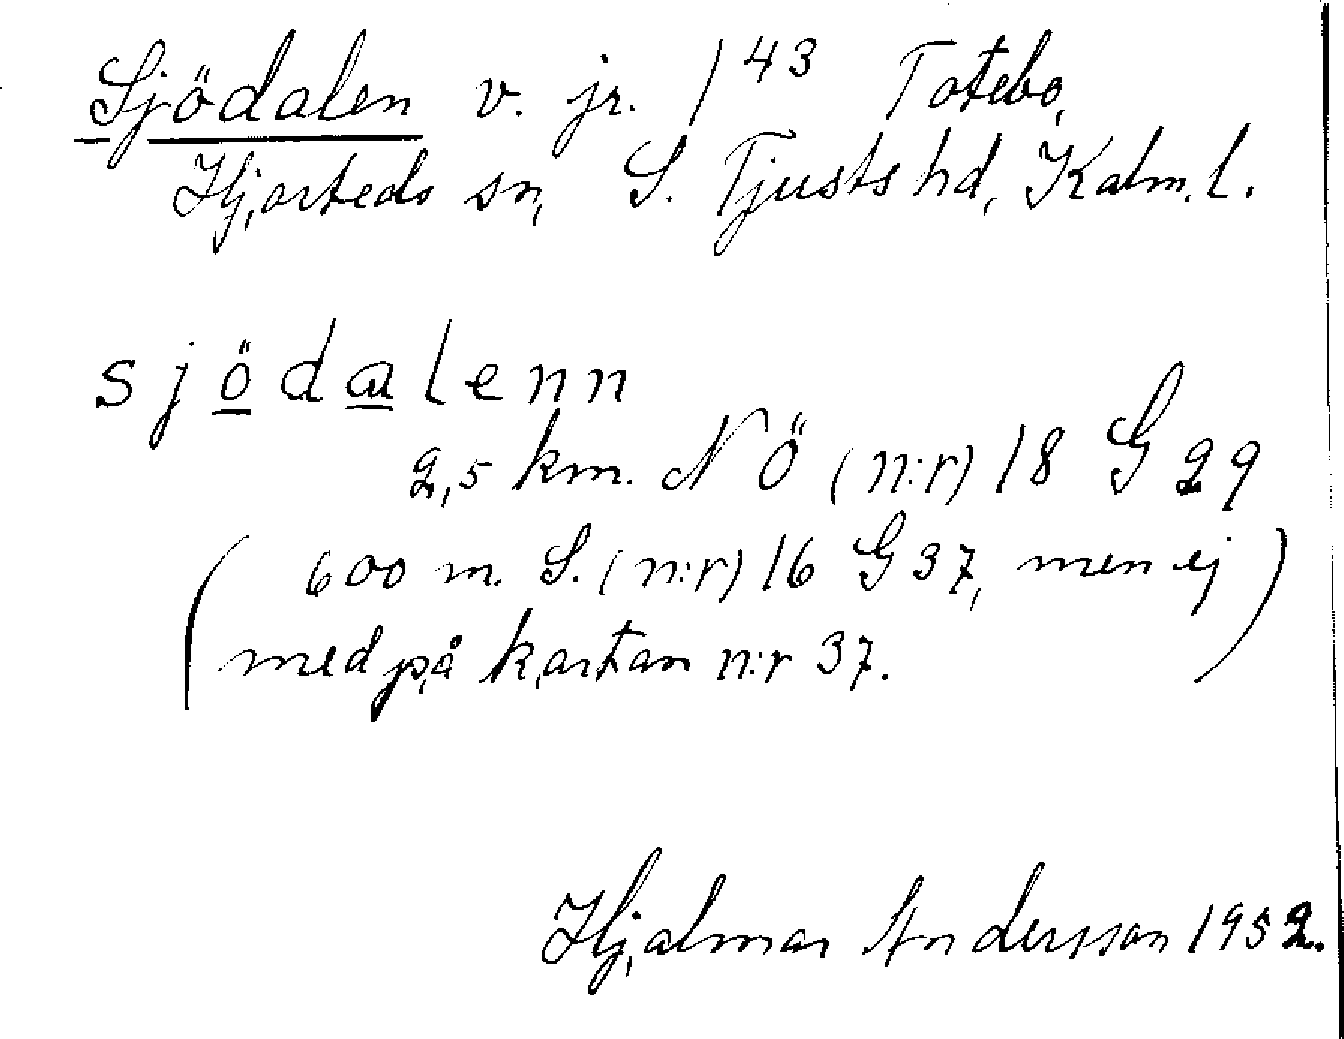 Sjödalen v. jr. 1⁴³ Totebo,
Hjorteds sn, S. Tjusts hd, Kalm. l.
sjödalenn
2,5 km. NÖ (n:r) 18 G 29
(600 m. S. (n:r) 16 G 37, men ej
med på kartan n:r 37.)
Hjalmar Andersson 1952.